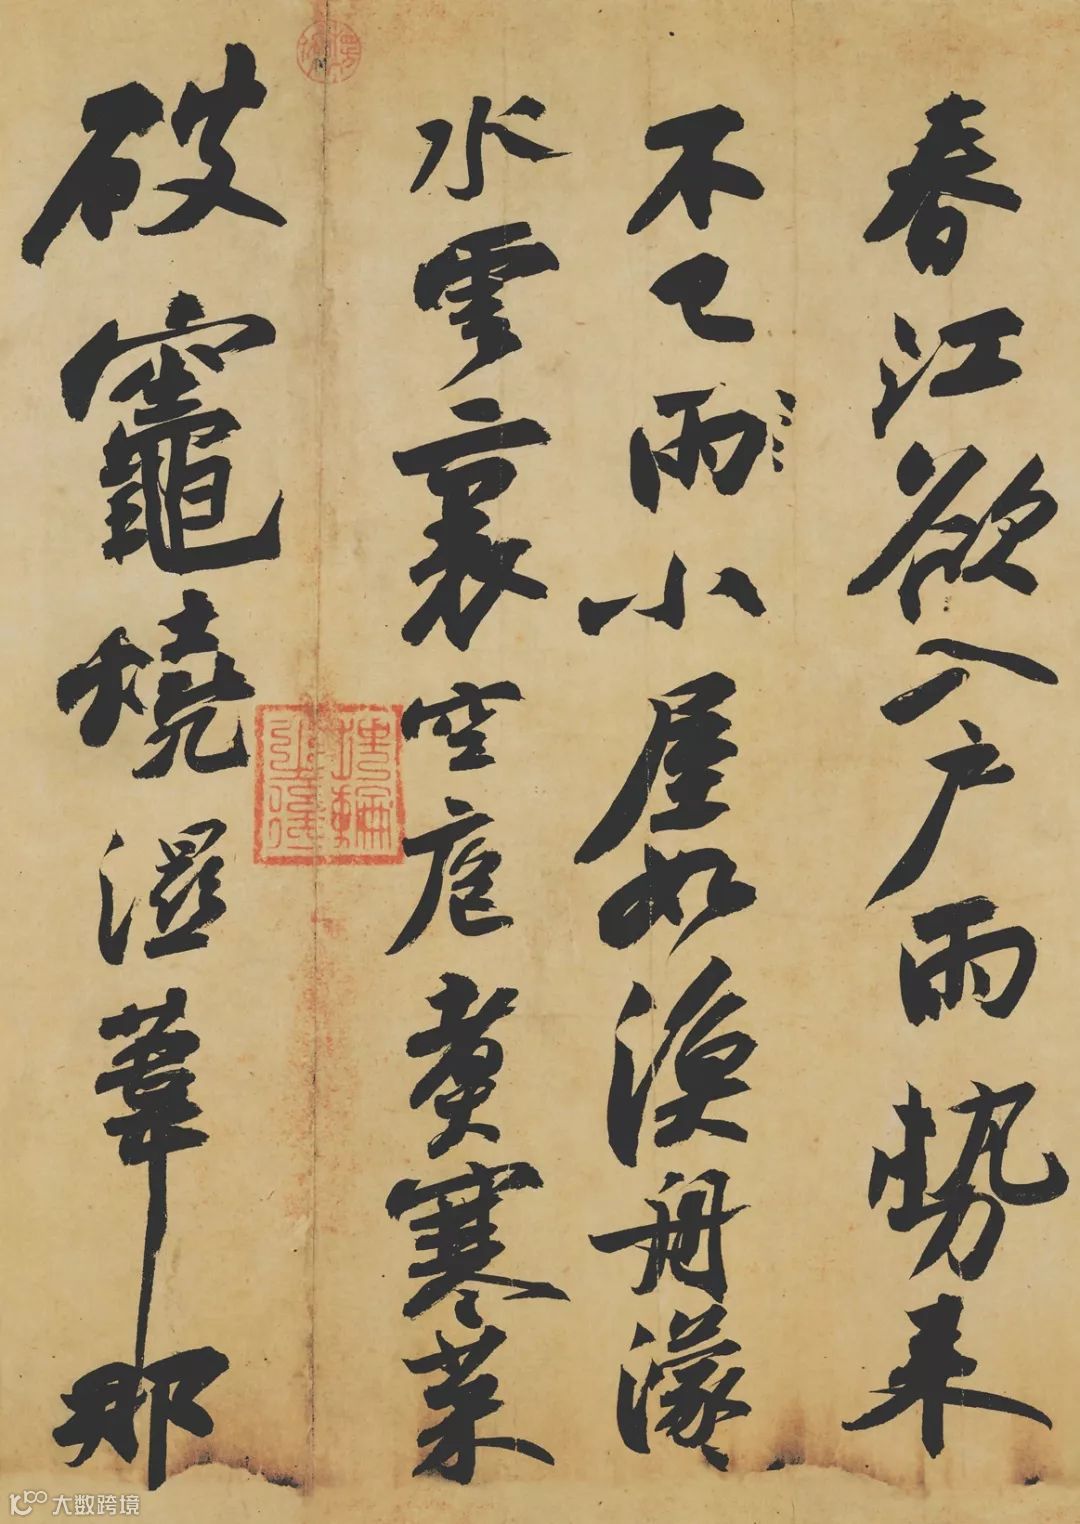 春江欲入戶雨勢来
不已雨小屋如漁舟濛〻
水雲裏空庖煮寒菜
破竈燒濕葦那
埋輪之後
大数跨境